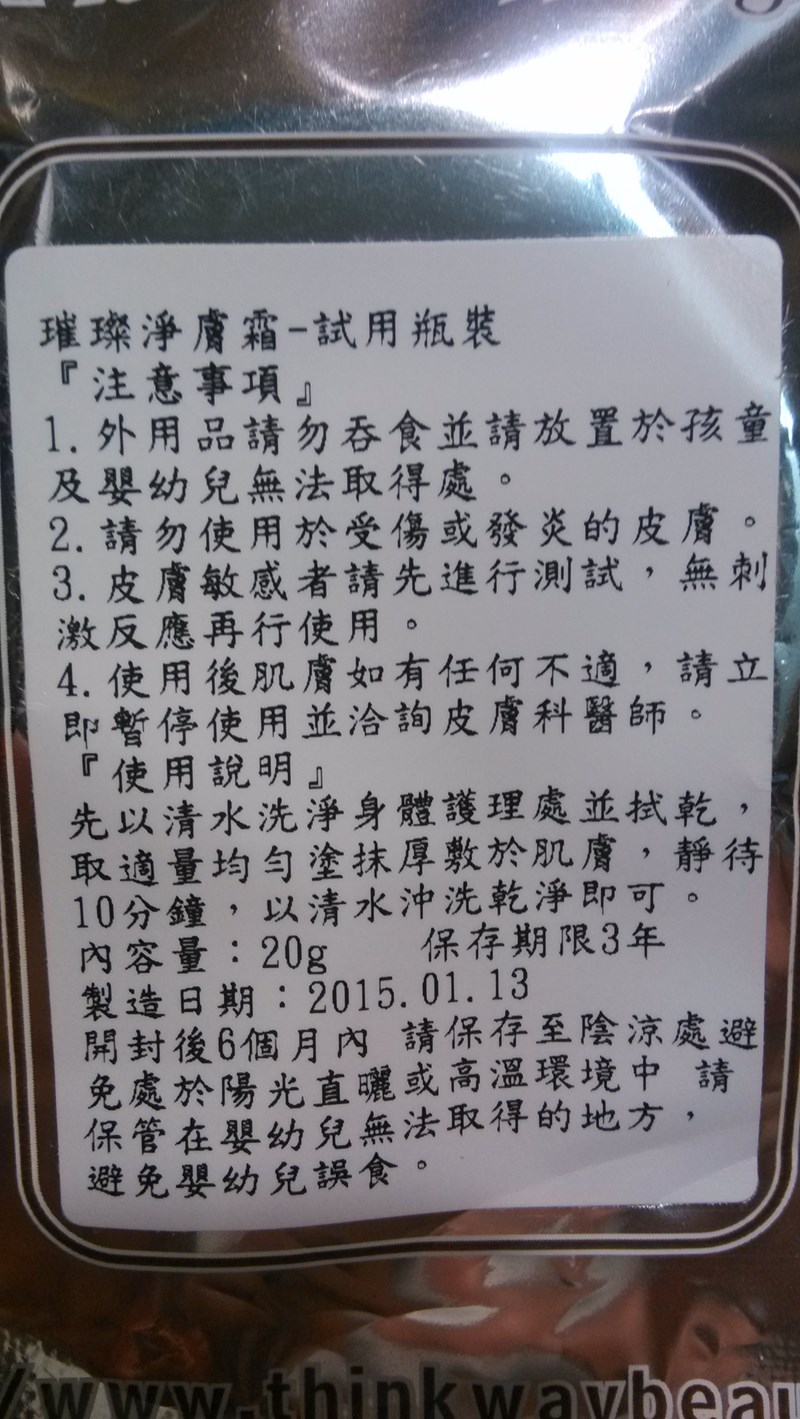 璀璨淨膚霜-試用瓶裝
『注意事項』
1.外用品請勿吞食並請放置於孩童
及嬰幼兒無法取得處。
2.請勿使用於受傷或發炎的皮膚。
3.皮膚敏感者請先進行測試，無刺
激反應再行使用。
4.使用後肌膚如有任何不適，請立
即暫停使用並洽詢皮膚科醫師。
『使用說明』
先以清水洗淨身體護理處並拭乾，
取適量均勻塗抹厚敷於肌膚，靜待
10分鐘，以清水沖洗乾淨即可。
內容量：20g 保存期限3年
製造日期：2015.01.13
開封後6個月內 請保存至陰涼處避
免處於陽光直曬或高溫環境中 請
保管在嬰幼兒無法取得的地方，
避免嬰幼兒誤食。
/www.thinkwaybeau